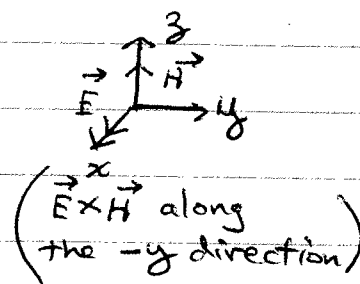 z
E⃗ H⃗
y
x
(E⃗×H⃗ along
the -y direction)